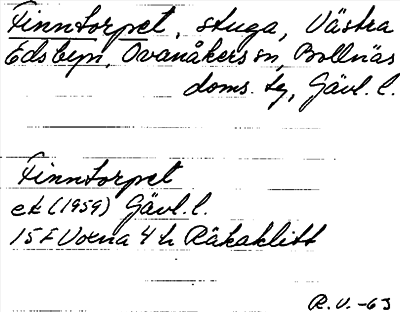 Finntorpet, stuga, Västra
Edsbyn, Ovanåkers sn, Bollnäs
doms. tg, Gävl. l.
Finntorpet
ek (1959) Gävl. l.
15 F Voxna 4 h Räkaklitt
R. V. -63